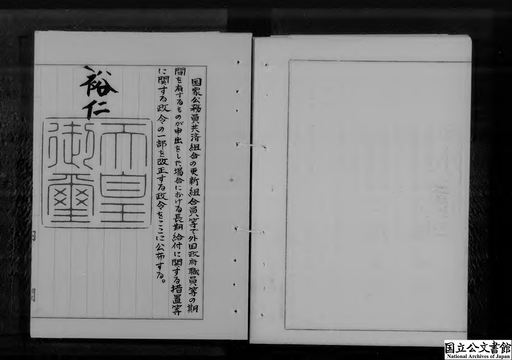 国家公務員共済組合の更新組合員等で外国政府職員等の期
間を有するものが申出をした場合における長期給付に関する措置等
に関する政令の一部を改正する政令をここに公布する。
裕仁
天皇
御璽
国立公文書館
National Archives of Japan